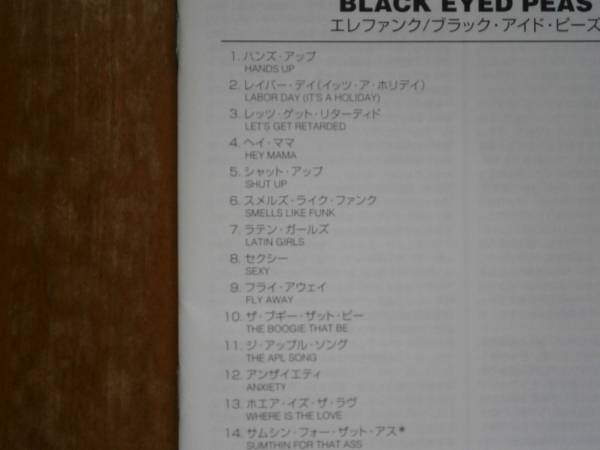 BLACK EYED PEAS
エレファンク/ブラック・アイド・ピーズ
1. ハンズ・アップ
HANDS UP
2. レイバー・デイ(イッツ・ア・ホリデイ)
LABOR DAY (IT'S A HOLIDAY)
3. レッツ・ゲット・リターディド
LET'S GET RETARDED
4. ヘイ・ママ
HEY MAMA
5. シャット・アップ
SHUT UP
6. スメルズ・ライク・ファンク
SMELLS LIKE FUNK
7. ラテン・ガールズ
LATIN GIRLS
8. セクシー
SEXY
9. フライ・アウェイ
FLY AWAY
10. ザ・ブギー・ザット・ビー
THE BOOGIE THAT BE
11. ジ・アップル・ソング
THE APL SONG
12. アンザイエティ
ANXIETY
13. ホエア・イズ・ザ・ラヴ
WHERE IS THE LOVE
14. サムシン・フォー・ザット・アス*
SUMTHIN FOR THAT ASS